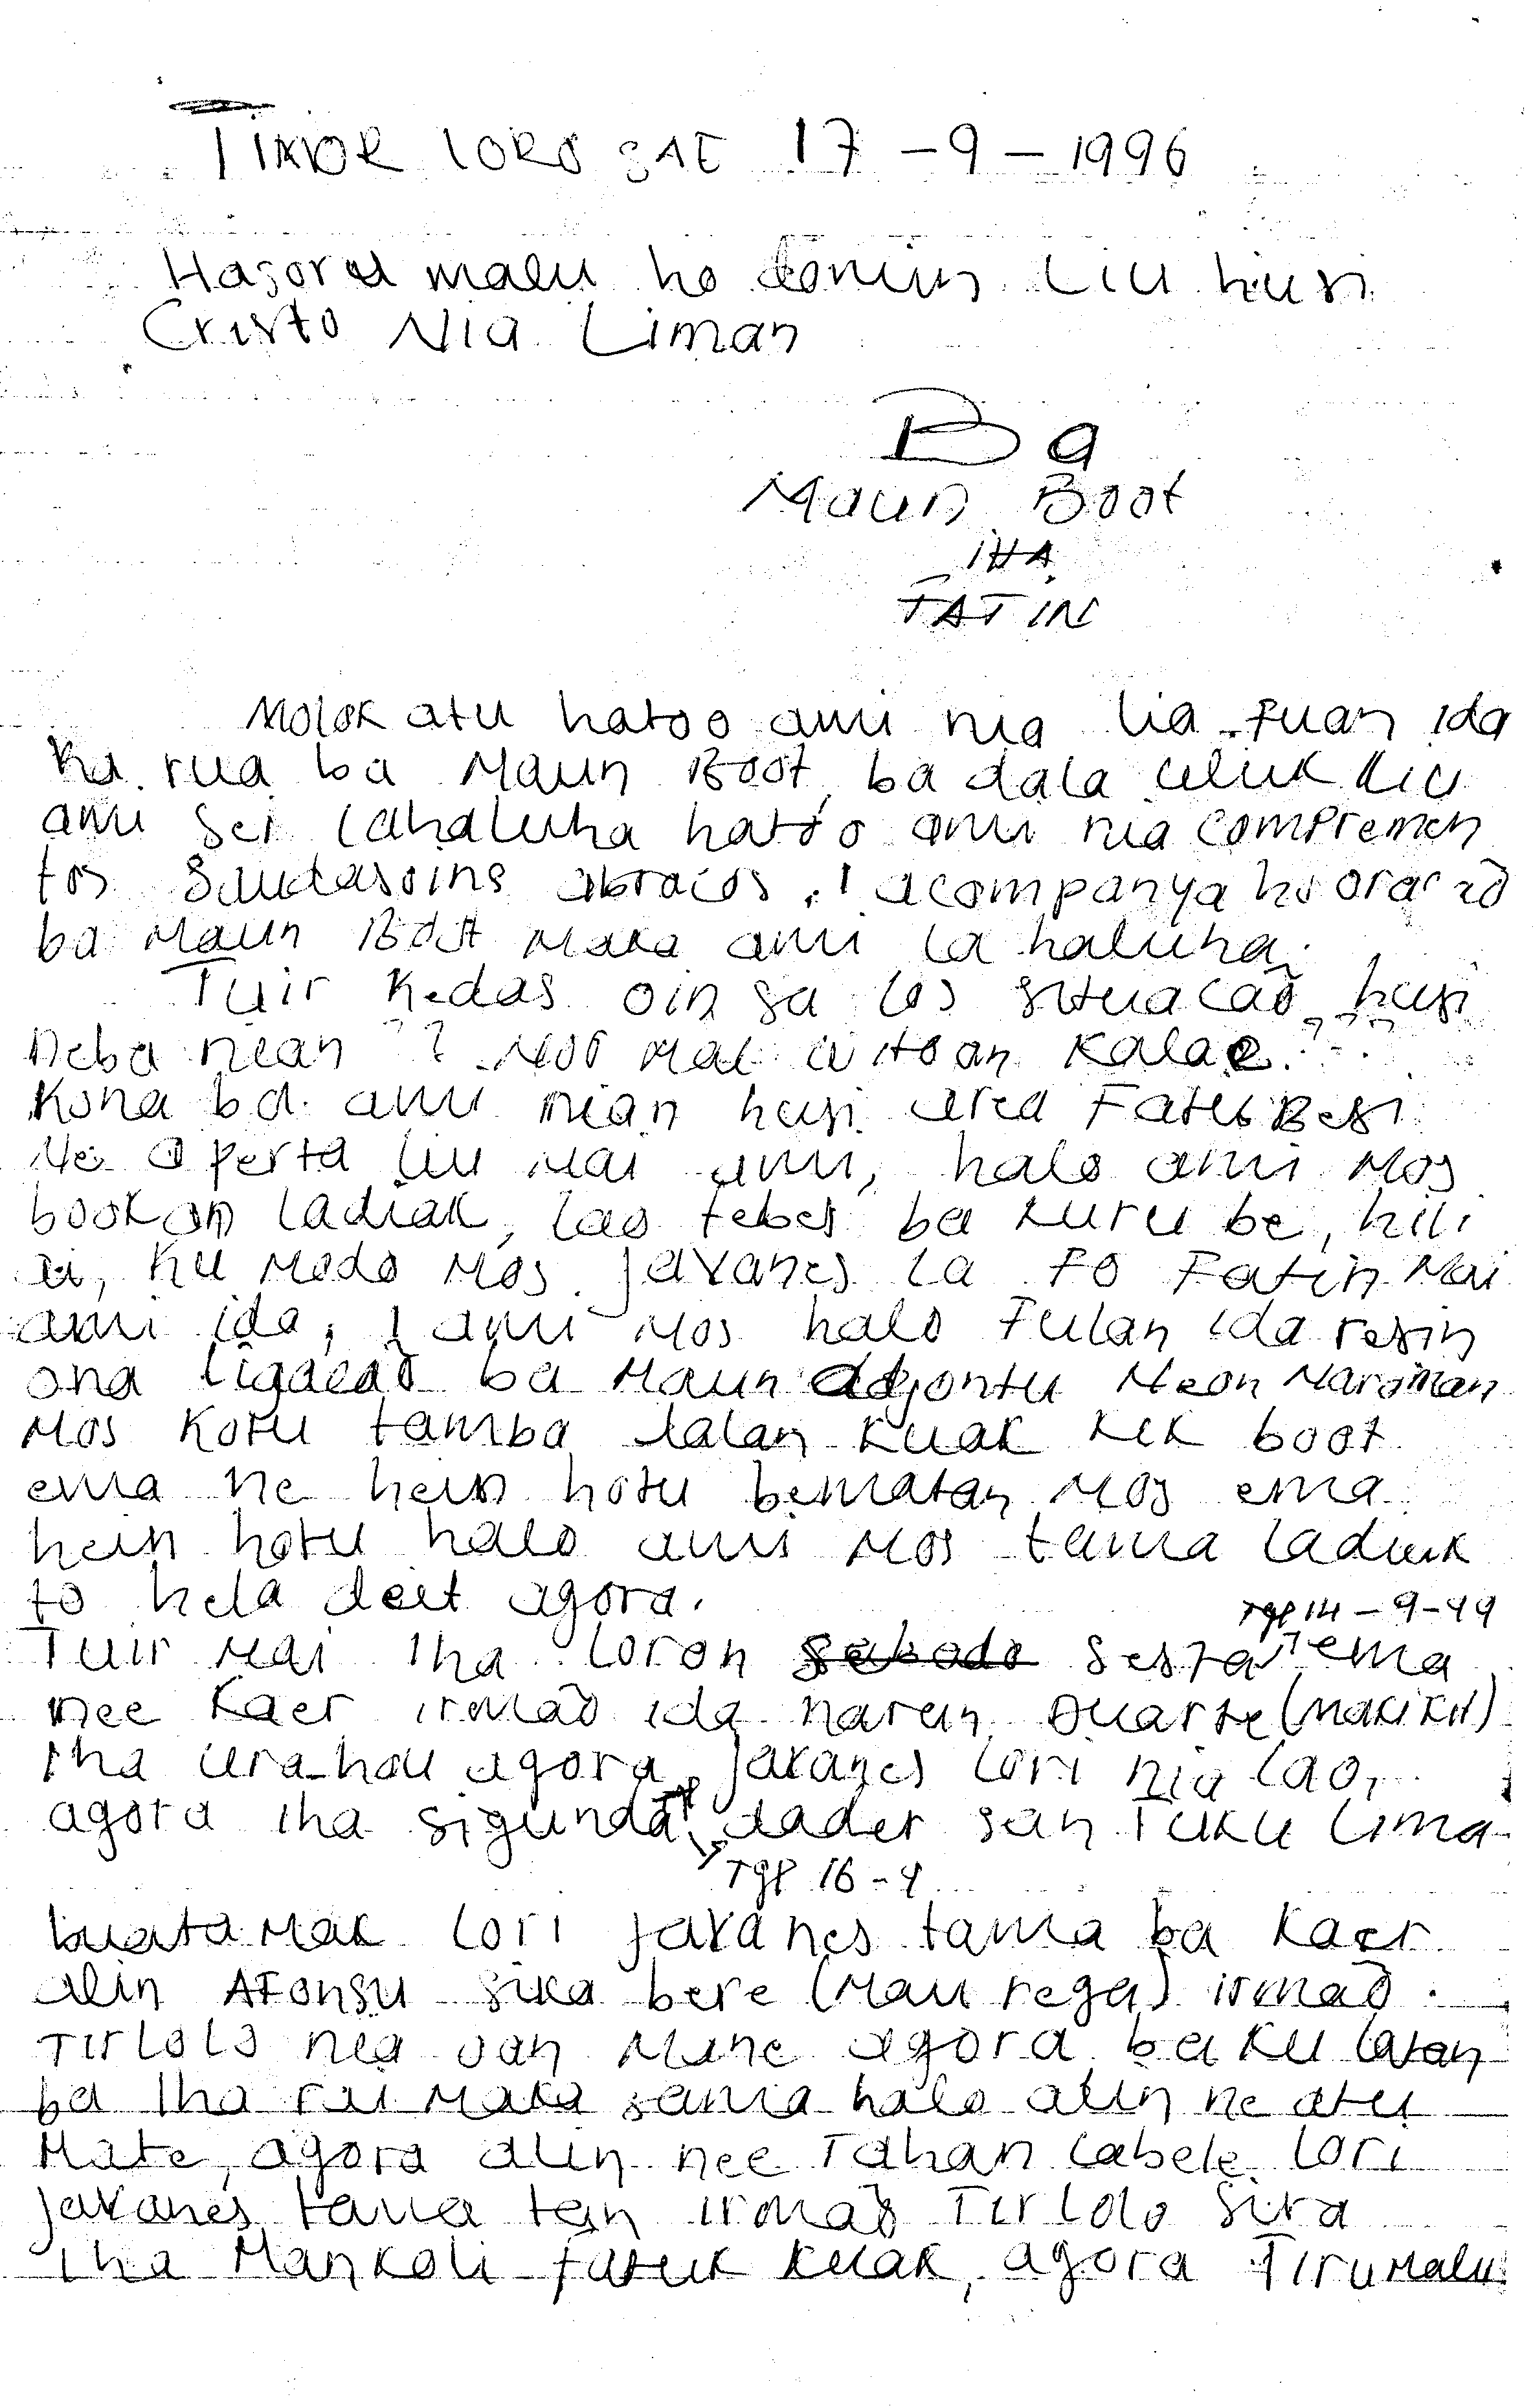 TIMOR LORO SAE 17-9-1996
Hasoru malu ho domin liu husi
Cristo Nia Liman
Ba
Maun Boot
IHA
FATIN
Molok atu hatoo ami nia lia-fuan ida
ka rua ba Maun Boot, ba dala uluk liu
ami sei lahaluha hatoo ami nia compremen
tos saudasoins abracos, i acompanya ho oracaõ
ba Maun Boot maka ami la haluha.
Tuir kedas oin sa los situacaõ husi
neba nian ?? Nor mal uitoan kalae.???
Kona ba ami nian husi area FatuBesi
Ne aperta liu mai ami, halo ami mos
bookan ladiak, lao tebes ba kuru be, hili
ai, ku modo mos javanes la fo fatin mai
ami ida, i ami mos halo fulan ida resin
ona ligacaõ ba Maun Adjontu Neon Naroman
mos kotu tamba dalan kuak kek boot
ema ne hein hotu bematan mos ema
hein hotu halo ami mos tama ladiak
to hela deit agora.
Tgl 14-9-99
Tuir mai iha loron sabado sesta ema
nee kaer irmaõ ida naran Duarte (makikit)
iha urahou agora javanes lori nia lao,
agora iha sigunda dader san tuku lima
Tgl 16-9
buatamak lori javanes tama ba kaer
alin Afonsu sika bere (Mau rega) irmaõ
Tirlolo nia oan mane agora baku latan
ba iha rai maka sama halo alin ne atu
mate, agora alin nee Tahan labele lori
javanes tama ten irmaõ Tirlolo sira
iha Mankoli fatuk kuak, agora Tirumalu